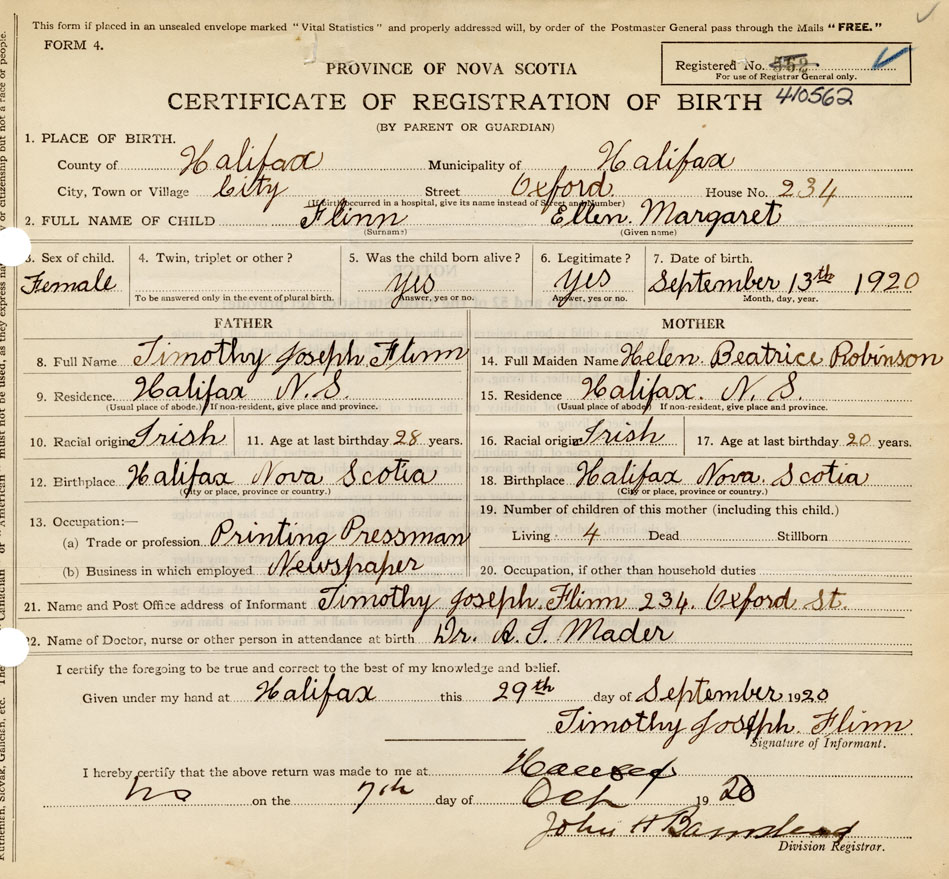 This form if placed in an unsealed envelope marked "Vital Statistics" and properly addressed will, by order of the Postmaster General pass through the Mails "FREE."
FORM 4.
Registered No. 552
For use of Registrar General only.
PROVINCE OF NOVA SCOTIA
CERTIFICATE OF REGISTRATION OF BIRTH 410562
(BY PARENT OR GUARDIAN)
1. PLACE OF BIRTH.
County of Halifax Municipality of Halifax
City, Town or Village City Street Oxford House No. 234
(If birth occurred in a hospital, give its name instead of Street and Number)
2. FULL NAME OF CHILD Flinn Ellen. Margaret
(Surname) (Given name)
3. Sex of child. 4. Twin, triplet or other? 5. Was the child born alive? 6. Legitimate? 7. Date of birth.
Female yes yes September 13th 1920
To be answered only in the event of plural birth. Answer, yes or no. Answer, yes or no. Month, day, year.
FATHER MOTHER
8. Full Name Timothy Joseph Flinn 14. Full Maiden Name Helen. Beatrice Robinson
9. Residence. Halifax N.S. 15. Residence Halifax. N.S.
(Usual place of abode.) If non-resident, give place and province. (Usual place of abode) If non-resident, give place and province.
10. Racial origin Irish 11. Age at last birthday 28 years. 16. Racial origin Irish 17. Age at last birthday 20 years.
12. Birthplace Halifax Nova Scotia 18. Birthplace Halifax Nova. Scotia
(City or place, province or country.) (City or place, province or country.)
13. Occupation:— 19. Number of children of this mother (including this child.)
(a) Trade or profession Printing Pressman Living 4 Dead Stillborn
(b) Business in which employed Newspaper 20. Occupation, if other than household duties
21. Name and Post Office address of Informant Timothy Joseph. Flinn 234. Oxford St.
22. Name of Doctor, nurse or other person in attendance at birth Dr. A. I. Mader
I certify the foregoing to be true and correct to the best of my knowledge and belief.
Given under my hand at Halifax this 29th day of September 1920
Timothy Joseph. Flinn
Signature of Informant.
I hereby certify that the above return was made to me at
on the 7th day of Oct 1920
John H Barnstead
Division Registrar.